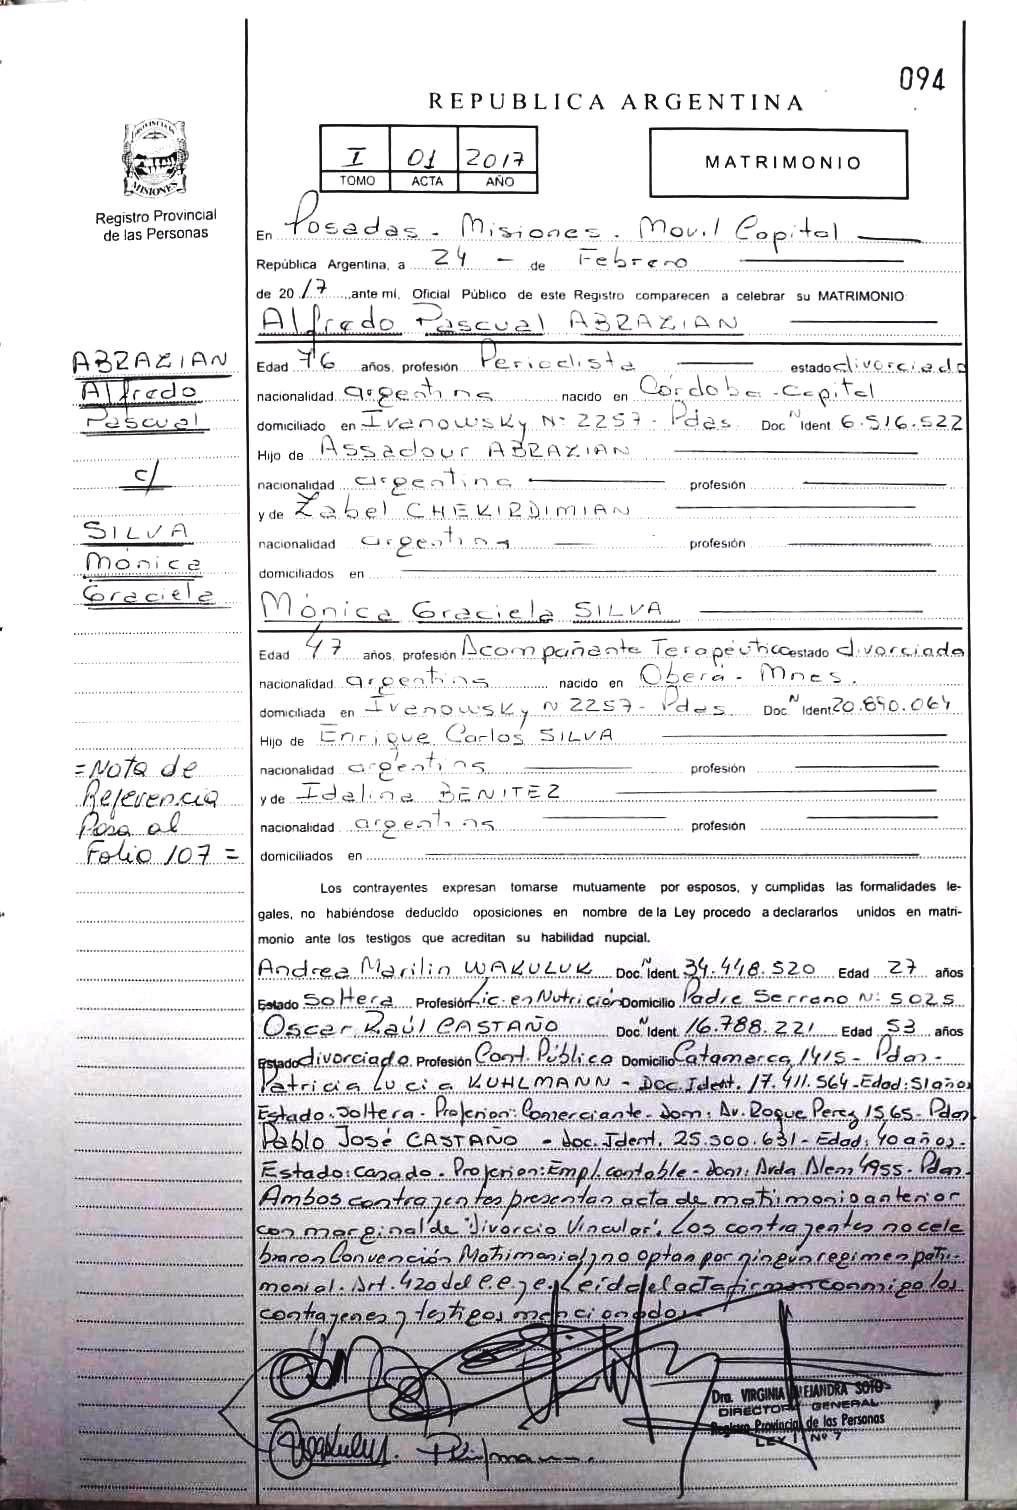 094
REPUBLICA ARGENTINA
I 01 2017
TOMO ACTA AÑO
MATRIMONIO
PROVINCIA DE
MISIONES
Registro Provincial
de las Personas
En Posadas - Misiones. Movil Capital
República Argentina, a 24 - de Febrero
de 2017, ante mi, Oficial Público de este Registro comparecen a celebrar su MATRIMONIO:
Alfredo Pascual ABRAZIAN
ABRAZIAN
Alfredo
Pascual
c/
SILVA
Mónica
Graciela
Edad 76 años, profesión Periodista estado divorciado
nacionalidad argentina nacido en Córdoba - Capital
domiciliado en Ivanowsky N: 2257 - Pdas. Doc. N Ident. 6.516.522
Hijo de Assadour ABRAZIAN
nacionalidad argentina profesión
y de Zabel CHEKIRDIMIAN
nacionalidad argentina profesión
domiciliados en
Mónica Graciela SILVA
Edad 47 años, profesión Acompañante Terapéutico estado divorciada
nacionalidad argentina nacido en Oberá - Mnes.
domiciliada en Ivanowsky N 2257 - Pdas Doc. N Ident. 20.890.064
Hijo de Enrique Carlos SILVA
nacionalidad argentina profesión
y de Idalina BENITEZ
nacionalidad argentina profesión
domiciliados en
=Nota de
Referencia
Pasa al
Folio 107 =
Los contrayentes expresan tomarse mutuamente por esposos, y cumplidas las formalidades le-
gales, no habiéndose deducido oposiciones en nombre de la Ley procedo a declararlos unidos en matri-
monio ante los testigos que acreditan su habilidad nupcial.
Andrea Marilin WAKULUK Doc. N Ident. 34.448.520 Edad 27 años
Estado Soltera Profesión Lic. en Nutrición Domicilio Padre Serrano N: 5025
Oscar Raúl CASTAÑO Doc. N Ident. 16.788.221 Edad 53 años
Estado divorciado Profesión Cont. Público Domicilio Catamarca 1415 - Pdas -
Patricia Lucia KUHLMANN - Doc. Ident. 17.411.564 - Edad: 51 años
Estado: Soltera - Profesion: Comerciante - Dom: Av. Roque Perez 1565 - Pdas
Pablo José CASTAÑO - Doc. Ident. 25.300.631 - Edad: 40 años -
Estado: Casado - Profesion: Empl. contable - Dom: Avda Alem 4955 - Pdas -
Ambos contrayentes presentan acta de matrimonio anterior
con marginal de "Divorcio Vincular". Los contrayentes no cele
braron Convención Matrimonial y no optan por ningún regimen patri-
monial. Art. 420 del C.C. y C. Leída el acta firman conmigo los
contrayenes y testigos mencionados
Dra. VIRGINIA ALEJANDRA SOTO
DIRECTORA GENERAL
Registro Provincial de las Personas
LEY I Nº 7